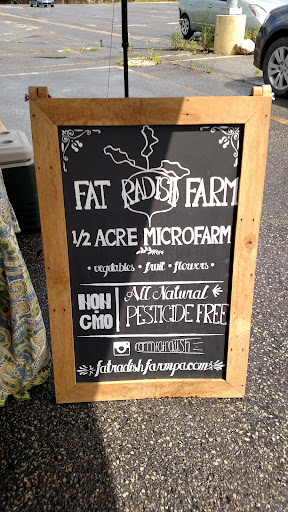 FAT RADISH FARM
1/2 ACRE MICROFARM
vegetables • fruit • flowers •
NON-GMO
All Natural
PESTICIDE FREE
fatradishfarmpa.com